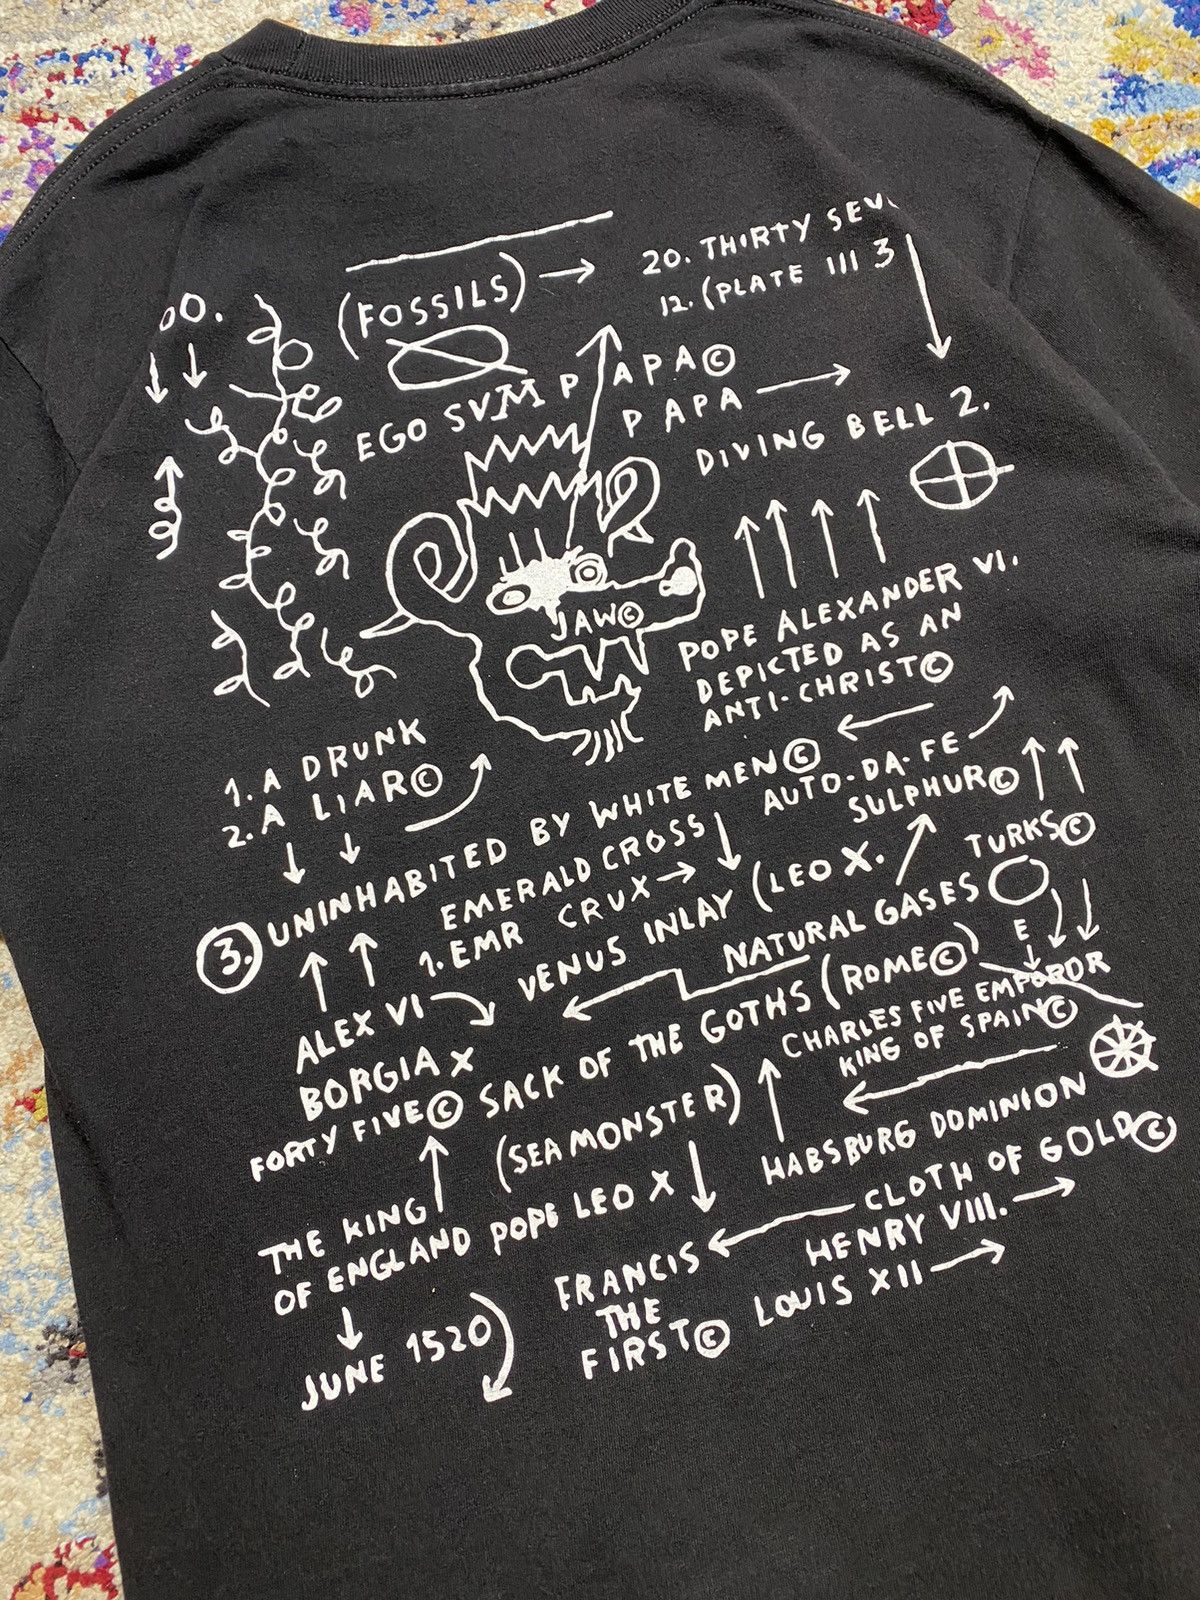 (FOSSILS) → 20. THIRTY
12. (PLATE III 3
OO.
EGO SVM PAPA©
PAPA →
DIVING BELL 2.
JAW©
POPE ALEXANDER VI.
DEPICTED AS AN
ANTI-CHRIST©
1. A DRUNK
2. A LIAR©
AUTO-DA-FE
SULPHUR©
3. UNINHABITED BY WHITE MEN©
EMERALD CROSS
1. EMR CRUX →
VENUS INLAY (LEO X.
TURKS©
NATURAL GASES
E
ALEX VI
BORGIA X
FORTY FIVE©
SACK OF THE GOTHS (ROME©)
CHARLES FIVE EMPOROR
KING OF SPAIN©
(SEA MONSTER)
HABSBURG DOMINION
THE KING
OF ENGLAND POPE LEO X
CLOTH OF GOLD©
HENRY VIII. →
LOUIS XII →
FRANCIS
THE
FIRST©
JUNE 1520